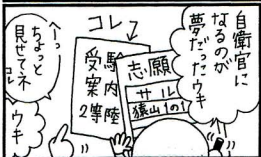 自衛官に
なるのが
夢だったウキ
コレ
志願
サル
猿山1の1
受験
案内
2等陸
へーっ
ちょっと
見せてネ
コレ
ウキ